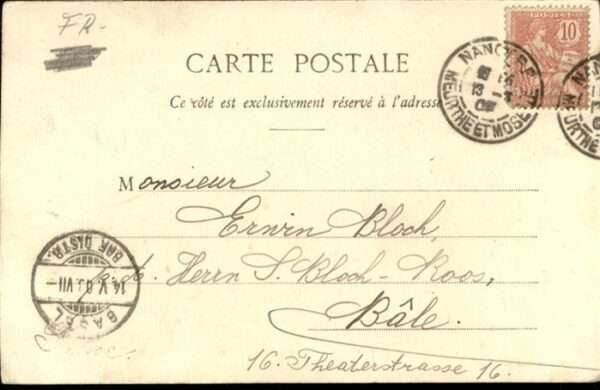 FR-
POSTES
10
CARTE POSTALE
Ce côté est exclusivement réservé à l'adresse
NANCY
MEURTHE ET MOSELLE
13
Monsieur
Erwin Bloch,
Herrn S. Bloch-Roos,
Bâle.
16. Theaterstrasse 16.
BRF. DISTR.
14 V
VII-
BASEL